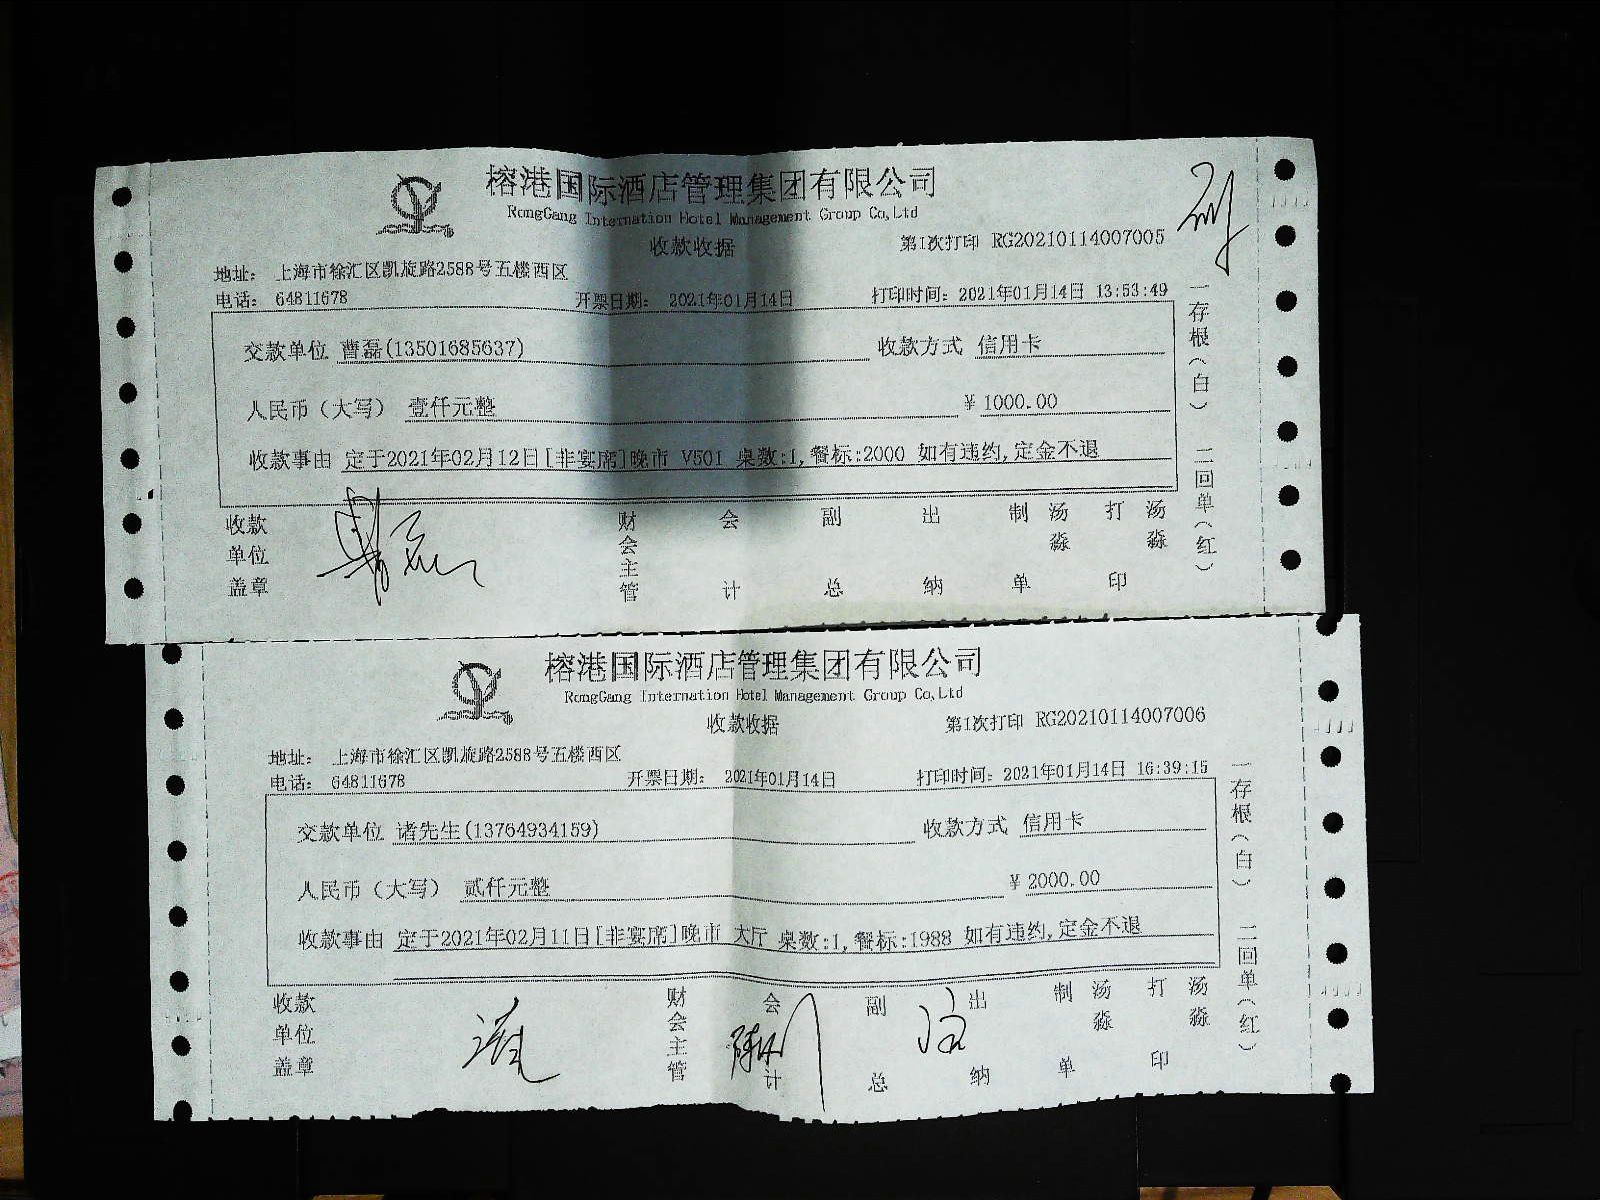 榕港国际酒店管理集团有限公司
RongGang Internation Hotel Management Group Co,Ltd
收款收据
第1次打印 RG20210114007005
地址： 上海市徐汇区凯旋路2588号五楼西区
电话： 64811678 开票日期： 2021年01月14日 打印时间：2021年01月14日 13:53:49
交款单位 曹磊(13501685637) 收款方式 信用卡
人民币（大写） 壹仟元整 ￥1000.00
收款事由 定于2021年02月12日[非宴席]晚市 V501 桌数:1,餐标:2000 如有违约,定金不退
收款单位盖章 财会主管 会计 副总 出纳 制单 汤淼 打印 汤淼
一存根（白） 二回单（红）
榕港国际酒店管理集团有限公司
RongGang Internation Hotel Management Group Co,Ltd
收款收据
第1次打印 RG20210114007006
地址： 上海市徐汇区凯旋路2588号五楼西区
电话： 64811678 开票日期： 2021年01月14日 打印时间：2021年01月14日 16:39:15
交款单位 诸先生(13764934159) 收款方式 信用卡
人民币（大写） 贰仟元整 ￥2000.00
收款事由 定于2021年02月11日[非宴席]晚市 大厅 桌数:1,餐标:1988 如有违约,定金不退
收款单位盖章 财会主管 会计 副总 出纳 制单 汤淼 打印 汤淼
一存根（白） 二回单（红）